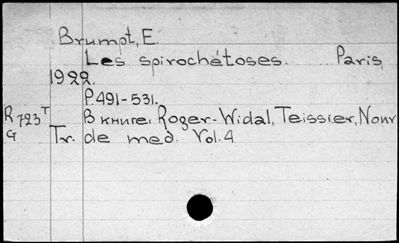 Brumpt, E.
Les spirochétoses. Paris,
1922.
P. 491-531.
R 723 T В книге: Roger-Widal, Teissier, Nouv
G Tr. de med. Vol. 4